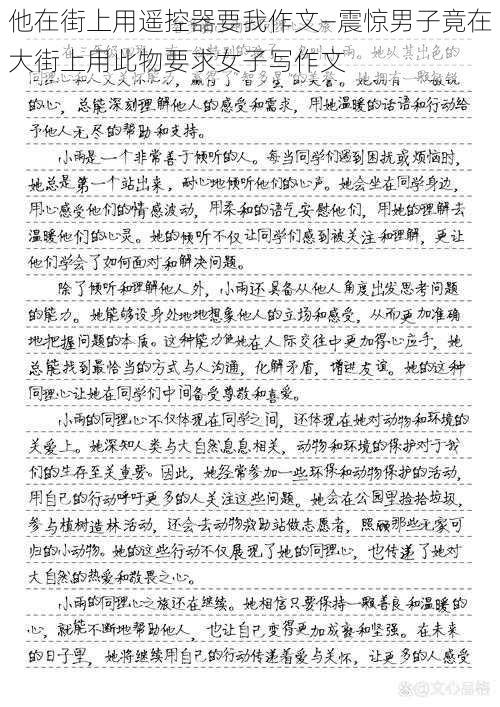 他在街上用遥控器要我作文—震惊男子竟在
大街上用此物要求女子写作文
她从其出色的
同理心和人文关怀能力，赢得了“智多星”的美誉。她拥有一颗敏锐
的心，总能深刻理解他人的感受和需求，用她温暖的话语和行动给
予他人无尽的帮助和支持。
小雨是一个非常善于倾听的人。每当同学们遇到困扰或烦恼时，
她总是第一个站出来，耐心地倾听他们的心声。她会坐在同学身边，
用心感受他们的情感波动，用柔和的语气安慰他们，用她的理解去
温暖他们的心灵。她的倾听不仅让同学们感到被关注和理解，更让
他们学会了如何面对和解决问题。
除了倾听和理解他人外，小雨还具备从他人角度出发思考问题
的能力。她能够设身处地地想象他人的立场和感受，从而更加准确
地把握问题的本质。这种能力使她在人际交往中更加得心应手，她
总能找到最恰当的方式与人沟通，化解矛盾，增进友谊。她的这种
同理心让她在同学们中间备受尊敬和喜爱。
小雨的同理心不仅体现在同学之间，还体现在她对动物和环境的
关爱上。她深知人类与大自然息息相关，动物和环境的保护对于我
们的生存至关重要。因此，她经常参加一些环保和动物保护的活动，
用自己的行动呼吁更多的人关注这些问题。她会在公园里捡拾垃圾，
参与植树造林活动，还会去动物救助站做志愿者，照顾那些无家可
归的小动物。她的这些行动不仅展现了她的同理心，也传递了她对
大自然的热爱和敬畏之心。
小雨的同理心之旅还在继续。她相信只要保持一颗善良和温暖的
心，就能不断地帮助他人，也让自己变得更加成熟和坚强。在未来
的日子里，她将继续用自己的行动传递着爱与关怀，让更多的人感受
文心品格